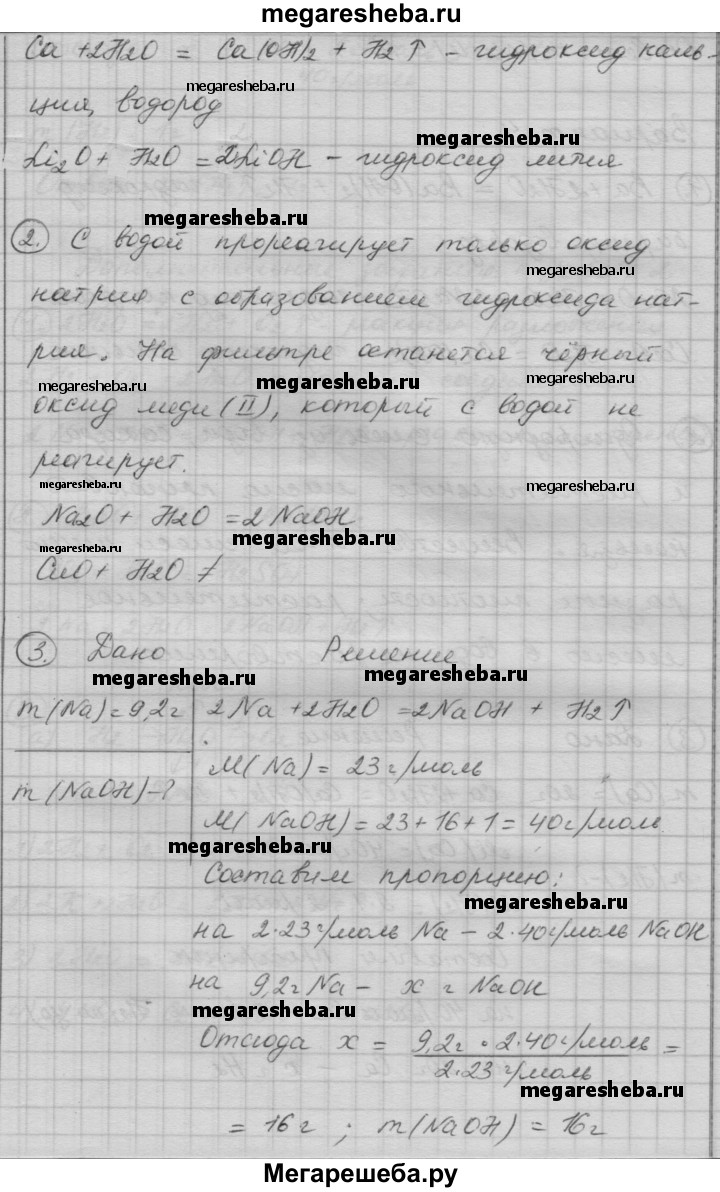 megaresheba.ru
Ca + 2H2O = Ca(OH)2 + H2↑ - гидроксид каль-
megaresheba.ru
ция, водород
megaresheba.ru
Li2O + H2O = 2LiOH - гидроксид лития
megaresheba.ru
2. С водой прореагирует только оксид
megaresheba.ru
натрия с образованием гидроксида нат-
рия. На фильтре останется чёрный
megaresheba.ru megaresheba.ru megaresheba.ru
оксид меди (II), который с водой не
реагирует.
megaresheba.ru megaresheba.ru
Na2O + H2O = 2NaOH
megaresheba.ru
megaresheba.ru
CuO + H2O ≠
3. Дано Решение
megaresheba.ru
m(Na) = 9,2г 2Na + 2H2O = 2NaOH + H2↑
megaresheba.ru
M(Na) = 23 г/моль
m(NaOH) - ?
M(NaOH) = 23 + 16 + 1 = 40 г/моль
megaresheba.ru
Составим пропорцию:
megaresheba.ru
на 2·23 г/моль Na - 2·40 г/моль NaOH
на 9,2г Na - x г NaOH
megaresheba.ru
Отсюда x = 9,2г · 2·40 г/моль =
2·23 г/моль
megaresheba.ru
= 16г ; m(NaOH) = 16г
Мегарешеба.ру